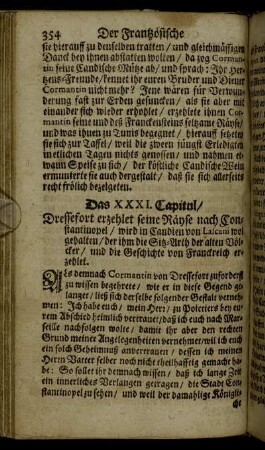 354 Der Frantzösische
sie hierauff zu denselben tratten / und gleichmässigen
Danck bey ihnen abstatten wolten / da zog Corman-
tin seine Candische Mütze ab / und sprach: Ihr Her-
tzens-Freunde / kennet ihr euren Bruder und Diener
Cormantin nicht mehr? Jene wären für Verwun-
derung fast zur Erden gesuncken / als sie aber mit
einander sich wieder erhohlet / erzehlete ihnen Cor-
mantin seine und deß Franckensteins seltzame Räyse /
und was ihnen zu Tunis begegnet / hierauff setzeten
sie sich zur Taffel / weil die zween jüngst Erledigten
in etlichen Tagen nichts genossen / und nahmen et-
wann Speise zu sich / der köstliche Candische Wein
ermunterte sie auch dergestalt / daß sie sich allerseits
recht frölich bezeigeten.
Das XXXI. Capitul /
Dressefort erzehlet seine Räyse nach Con-
stantinopel / wird in Candien von wol
gehalten / der ihm die Sitz-Arth der alten Völ-
cker / und die Geschichte von Franckreich er-
zehlet.
Als demnach Cormantin von Dressefort zuforderst
zu wissen begehrete / wie er in diese Gegend ge-
langet / ließ sich derselbe folgender Gestalt verneh-
men: Ich habe euch / mein Herz / zu Poictiers bey eu-
rem Abschied heimlich vertrauet / daß ich euch nach Mar-
seille nachfolgen wolte / damit ihr aber den rechten
Grund meiner Angelegenheiten vernehmet / will ich euch
ein solch Geheimnuß anvertrauen / dessen ich meinen
Herrn Vatter selber noch nicht theilhafftig gemacht ha-
be: So sollet ihr demnach wissen / daß ich lange Zeit
ein innerliches Verlangen getragen / die Stadt Con-
stantinopel zu sehen / und weil der damahlige Königli-
che